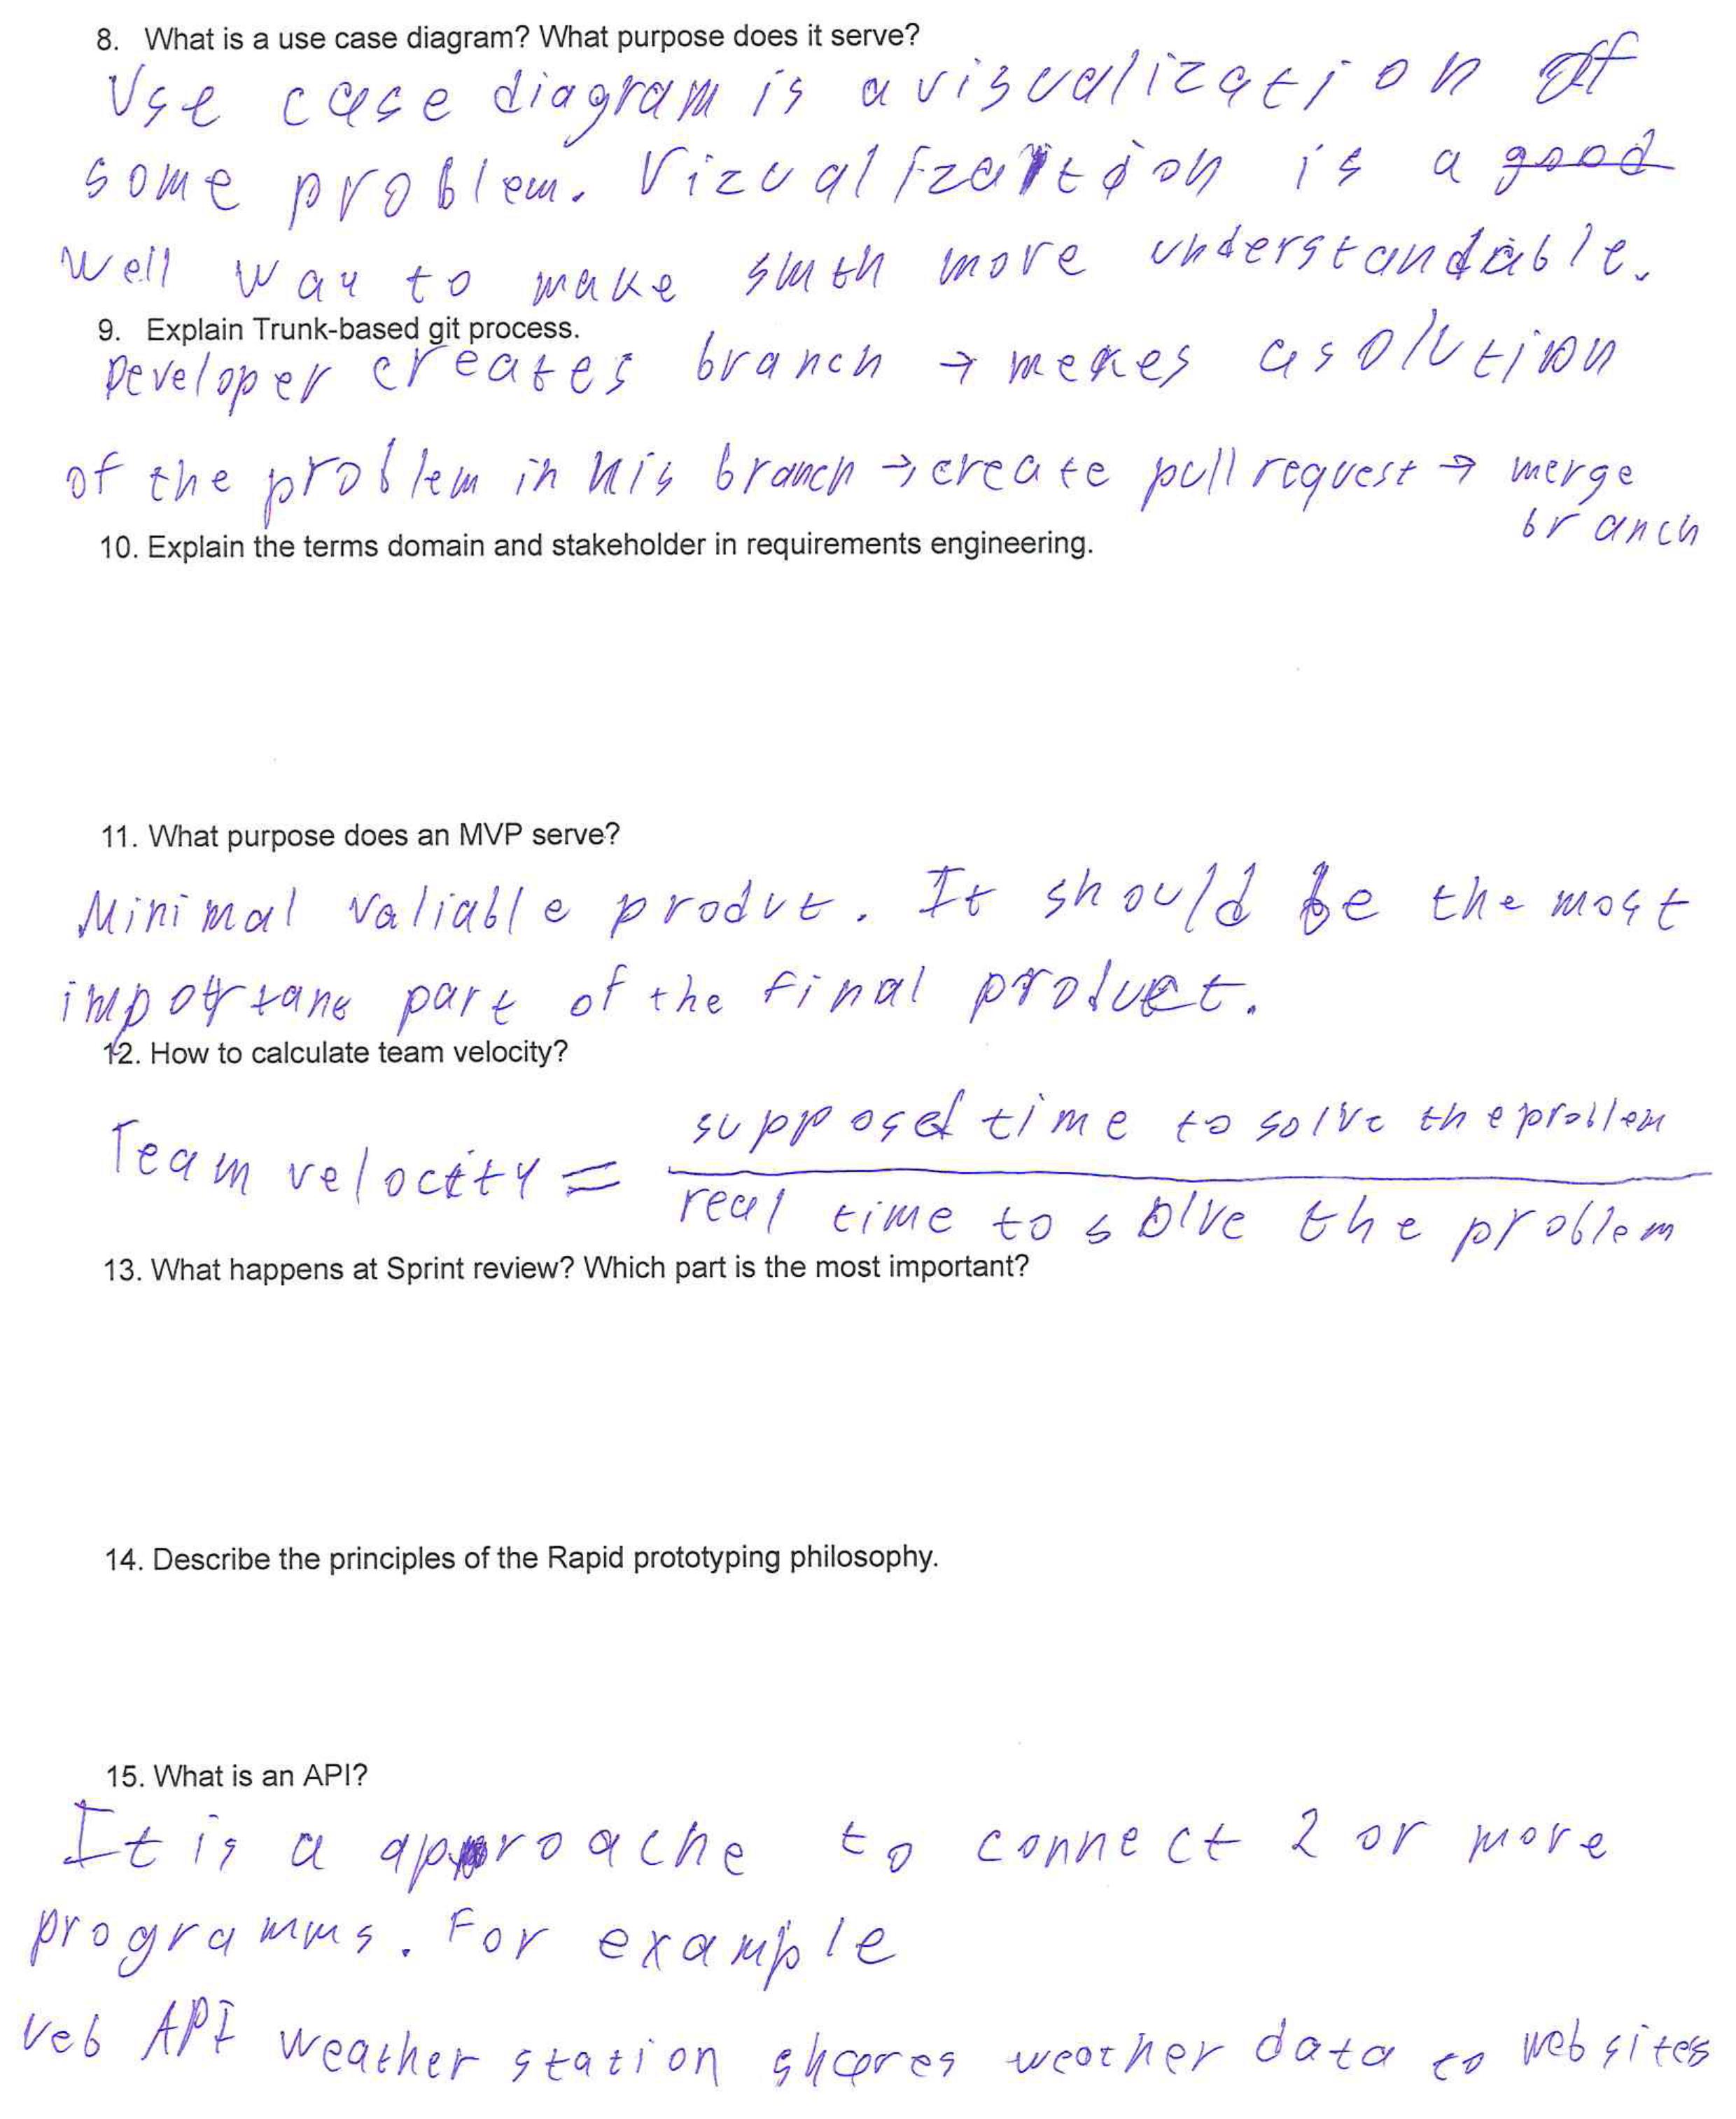 8. What is a use case diagram? What purpose does it serve?
Use case diagram is a visualization of
some problem. Vizualization is a good
well way to make smth more understandable.
9. Explain Trunk-based git process.
Developer creates branch → makes a solution
of the problem in his branch → create pull request → merge
branch
10. Explain the terms domain and stakeholder in requirements engineering.
11. What purpose does an MVP serve?
Minimal valiable produt. It should be the most
important part of the final product.
12. How to calculate team velocity?
supposed time to solve the problem
Team velocity =
real time to solve the problem
13. What happens at Sprint review? Which part is the most important?
14. Describe the principles of the Rapid prototyping philosophy.
15. What is an API?
It is a approache to connect 2 or more
programms. For example
veb API weather station shares weather data to websites